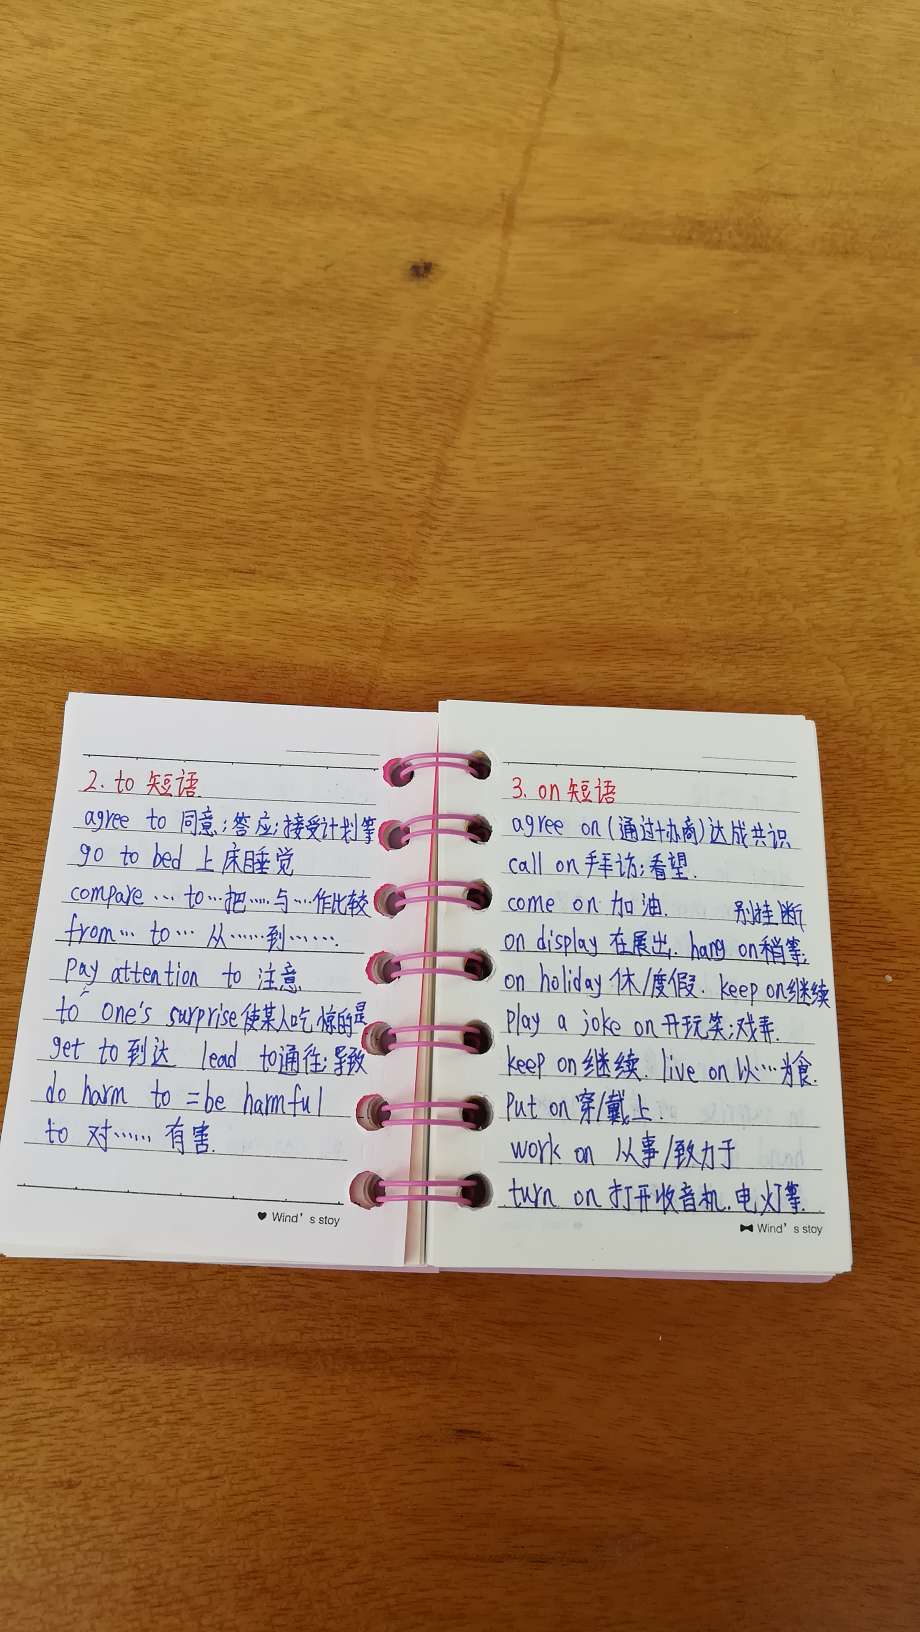 2. to 短语
agree to 同意;答应;接受计划等
go to bed 上床睡觉
compare … to…把……与…作比较
from… to… 从……到…….
pay attention to 注意
to one's surprise使某人吃惊的是
get to 到达 lead to通往;导致
do harm to =be harmful
to 对…… 有害.
♥ Wind’s stoy
3. on 短语
agree on (通过协商)达成共识
call on 拜访;看望.
come on 加油. 别挂断
on display 在展出. hang on稍等
on holiday 休/度假. keep on继续
play a joke on开玩笑;戏弄.
keep on继续. live on 以…为食.
put on 穿/戴上.
work on 从事/致力于
turn on 打开收音机.电灯等.
Wind’s stoy